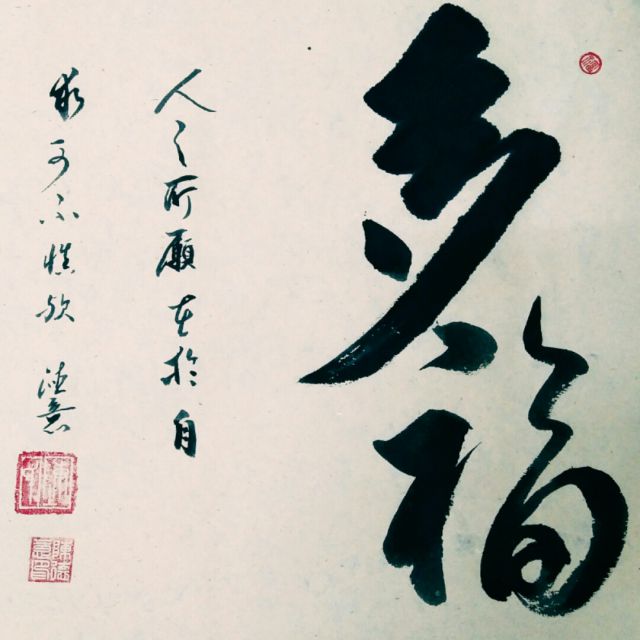 多福
人之所願在於自
取可不慎歟